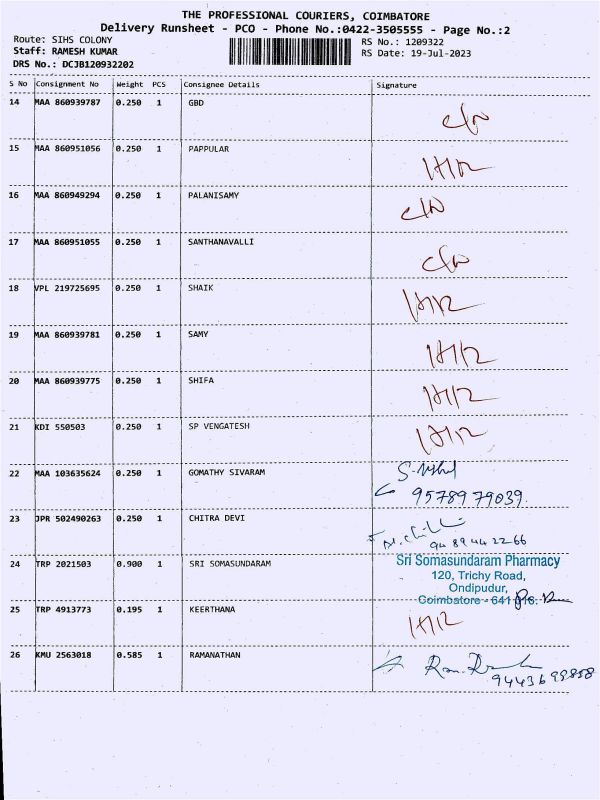 THE PROFESSIONAL COURIERS, COIMBATORE
Delivery Runsheet - PCO - Phone No.:0422-3505555 - Page No.:2
Route: SIHS COLONY RS No.: 1209322
Staff: RAMESH KUMAR RS Date: 19-Jul-2023
DRS No.: DCJB120932202
S No Consignment No Weight PCS Consignee Details Signature
14 MAA 860939787 0.250 1 GBD
15 MAA 860951056 0.250 1 PAPPULAR
16 MAA 860949294 0.250 1 PALANISAMY
17 MAA 860951055 0.250 1 SANTHANAVALLI
18 VPL 219725695 0.250 1 SHAIK
19 MAA 860939781 0.250 1 SAMY
20 MAA 860939775 0.250 1 SHIFA
21 KDI 550503 0.250 1 SP VENGATESH
22 MAA 103635624 0.250 1 GOMATHY SIVARAM
9578979039
23 JPR 502490263 0.250 1 CHITRA DEVI
94 89 44 22 66
24 TRP 2021503 0.900 1 SRI SOMASUNDARAM
Sri Somasundaram Pharmacy
120, Trichy Road,
Ondipudur,
Coimbatore - 641 016.
25 TRP 4913773 0.195 1 KEERTHANA
26 KMU 2563018 0.585 1 RAMANATHAN